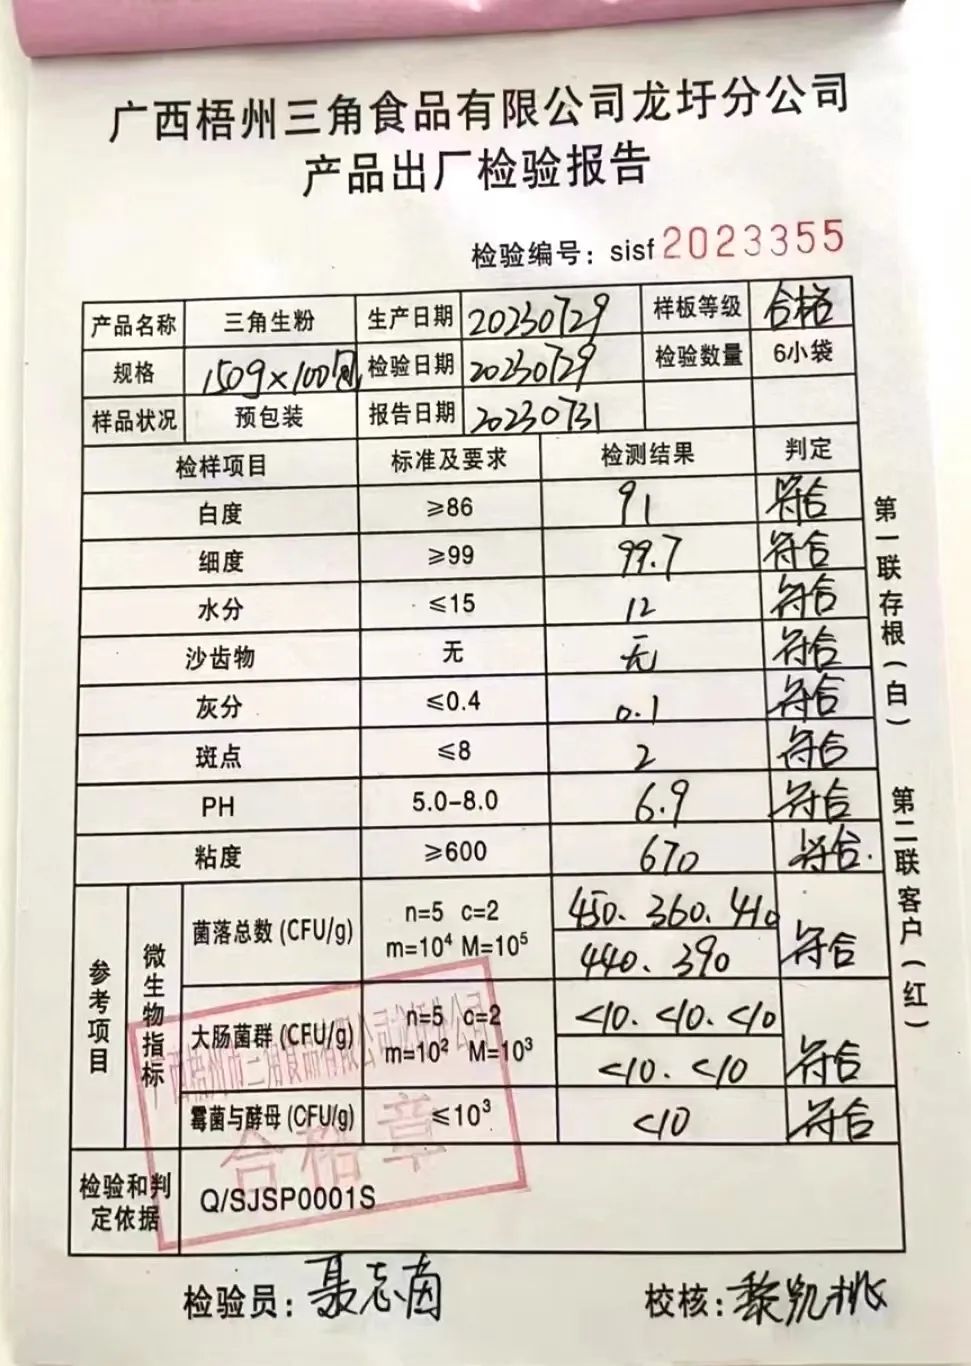 广西梧州三角食品有限公司龙圩分公司
产品出厂检验报告
检验编号：sisf 2023355
产品名称 三角生粉 生产日期 20230729 样板等级 合格
规格 150g×100 检验日期 20230729 检验数量 6小袋
样品状况 预包装 报告日期 20230731
检样项目 标准及要求 检测结果 判定
白度 ≥86 91 符合
细度 ≥99 99.7 符合
水分 ≤15 12 符合
沙齿物 无 无 符合
灰分 ≤0.4 0.1 符合
斑点 ≤8 2 符合
PH 5.0-8.0 6.9 符合
粘度 ≥600 670 符合.
参考项目 微生物指标
菌落总数(CFU/g) n=5 c=2 450、360、410
m=10⁴ M=10⁵ 440、390 符合
大肠菌群(CFU/g) n=5 c=2 <10、<10、<10
m=10² M=10³ <10、<10 符合
霉菌与酵母(CFU/g) ≤10³ <10 符合
检验和判定依据 Q/SJSP0001S
合格章
检验员：聂志
校核：黎凯桃
第一联存根（白）
第二联客户（红）